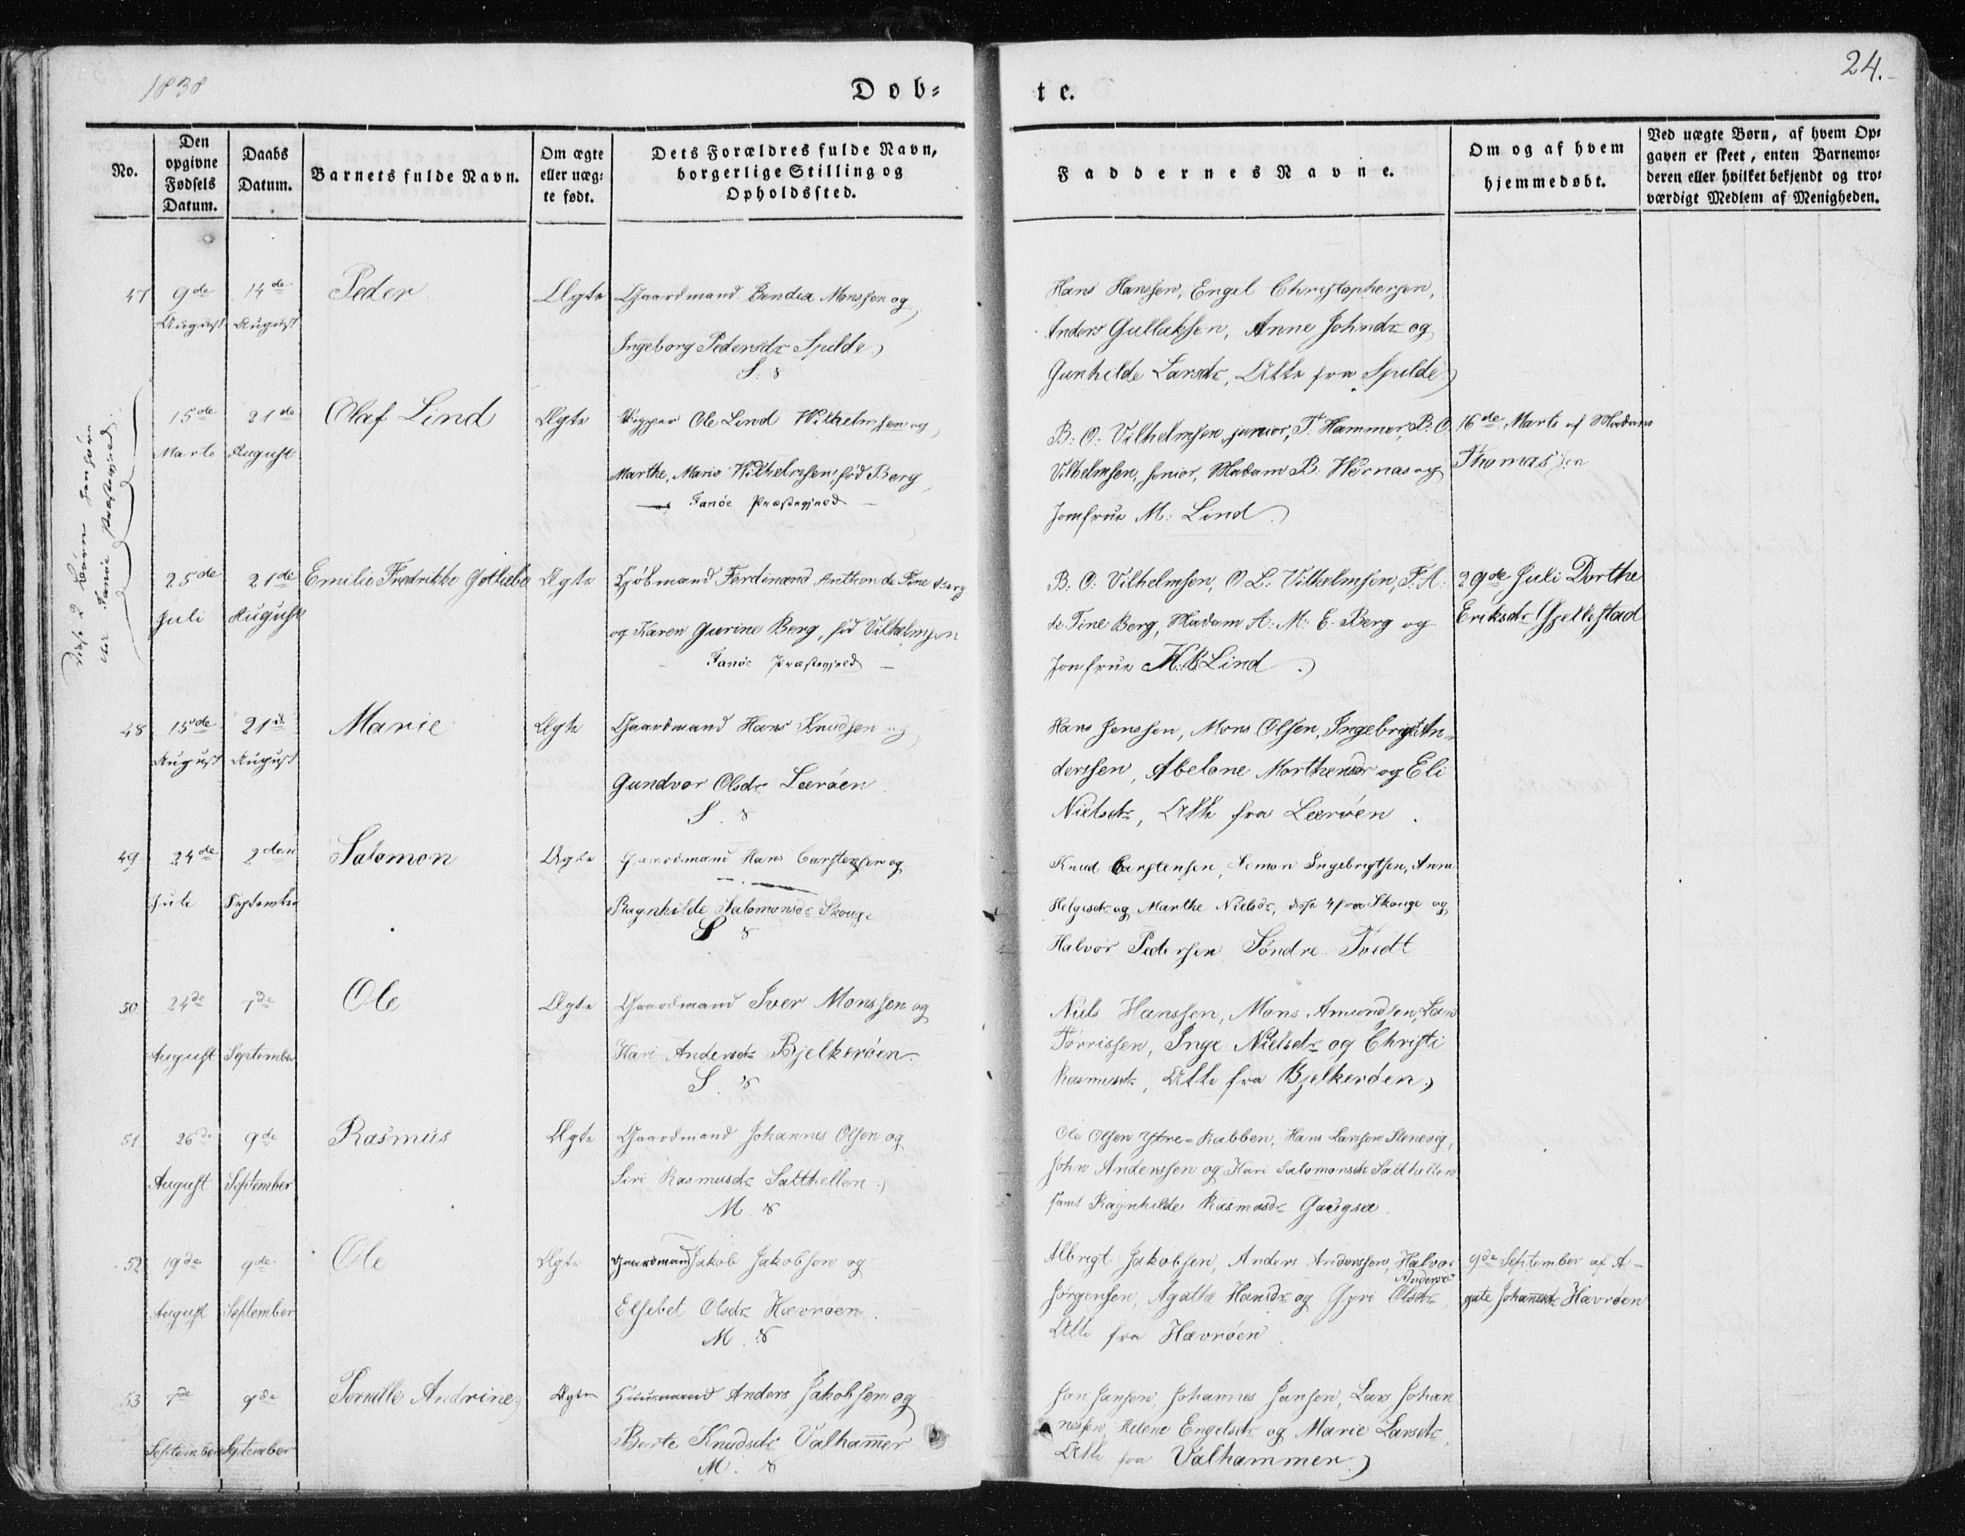 1838
Dob=
te.
24.
No.
Den opgivne Fødsels Datum.
Daabs Datum.
Barnets fulde Navn.
Om ægte eller uæg-te født.
Dets Forældres fulde Navn, borgerlige Stilling og Opholdssted.
Faddernes Navne.
Om og af hvem hjemmedøbt.
Ved uægte Børn, af hvem Op-gaven er skeet, enten Barnemo-deren eller hvilket bekjendt og tro-værdigt Medlem af Menigheden.
47 9de August 14de August Peder Ægte Gaardmand Bendix Monssen og
Ingeborg Pedersdr Spilde
S. 8
Hans Hanssen, Engel Christophersen,
Anders Gullaksen, Anne Johnsdr og
Gunhilde Larsdr, Alle fra Spilde
Disse 2 Børn henhøre
til Fanøe Præstegjeld
15de Marts 21de August Olaf Lind Ægte Ole Lind Wilhelmsen og
Marthe Marie Wilhelmsen, fød Berg
Fanöe Præstegjeld
B: O: Vilhelmsen junior, T. Hammer, B: O
Vilhelmsen, senior, Madam B. Wernas og
Jomfrue M. Lind
16de Marts af Madam
Thomassen
25de Juli 21de August Emilie Fredrikke Gotliebe Ægte Kjøbmand Ferdinand Anthon de Fine Berg
og Karen Gurine Berg, fød Vilhelmsen
Fanöe Præstegjeld
B. O: Vilhelmsen, O. L: Vilhelmsen, F. A.
de Fine Berg, Madam A: M: E. Berg og
Jomfrue K. B. Lind
29de Juli Dorthe
Eriksdr Gjellestad
48 15de August 21de August Marie Ægte Gaardmand Hans Knudsen og
Gundvor Olsdr Leeröen
S. 8
Hans Jenssen, Mons Olsen, Ingebrigt An-
derssen, Abelone Morthensdr og Eli
Nielsdr, Alle fra Leeröen
49 24de Juli 2den September Salomon Ægte Gaardmand Hans Carstensen og
Ragnhilde Salomonsdr Skouge
S 8
Knud Carstensen, Simon Ingebrigtsen, Anna
Helgesdr og Marthe Nielsdr, disse 4 fra Skouge og
Halvor Pedersen Söndre Tvedt
50 24de August 7de September Ole Ægte Gaardmand Iver Monssen og
Kari Andersdr Bjelkeröen
S. 8
Niels Hanssen, Mons Amundsen, Lars
Torrissen, Inge Nielsdr og Christi
Rasmusdr, Alle fra Bjelkeröen
51 26de August 9de September Rasmus Ægte Gaardmand Johannes Olsen og
Siri Rasmusdr Satthellen
M. 8
Ole Olsen Ytre-Rabben, Hans Larssen Stenevig,
John Anderssen og Kari Salomonsdr Satthellen
samt Ragnhilde Rasmusdr
52 19de August 9de September Ole Ægte Gaardmand Jakob Jakobsen og
Elsebet Olsdr Hævröen
M. 8
Albrigt Jakobsen, Anders Anderssen, Halvor
Jörgensen, Agathe Hansdr og Gyri Olsdr
Alle fra Hævröen
9de September af A-
gate Johannesdr Hævröen
53 7de September 9de September Pernille Andrine Ægte Huusmand Anders Jakobsen og
Berte Knudsdr Valhammer
M. 8
Jan Jansen, Johannes Jansen, Lars Johan
nessen, Helene Engelsdr og Marie Larsdr
Alle fra Valhammer